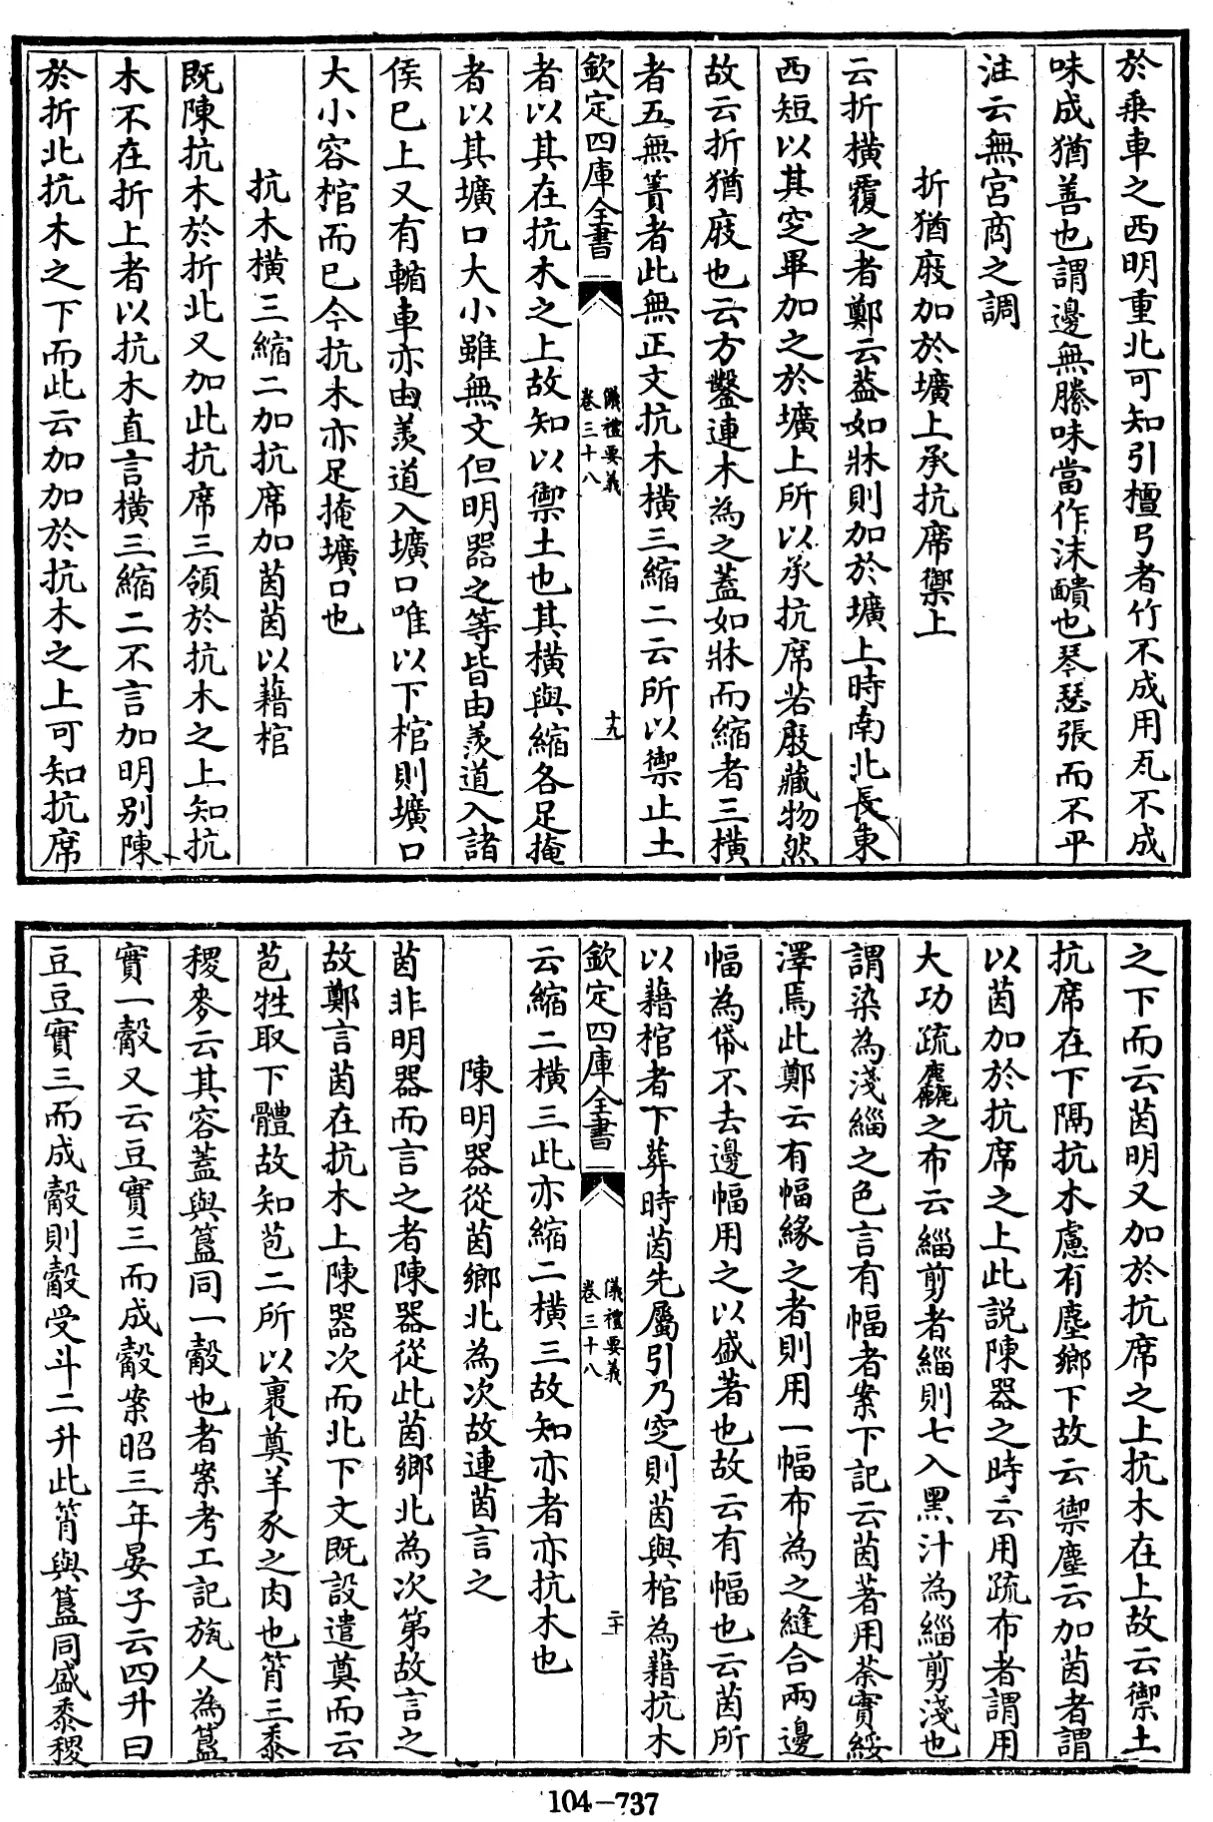 於乘車之西明重北可知引檀弓者竹不成用瓦不成
味成猶善也謂邊無縢味當作沬靧也琴瑟張而不平
注云無宮商之調
折猶庪加於壙上承抗席禦上
云折橫覆之者鄭云葢如牀則加於壙上時南北長東
西短以其窆畢加之於壙上所以承抗席若庪藏物然
故云折猶庪也云方鑿連木為之葢如牀而縮者三橫
者五無簀者此無正文抗木橫三縮二云所以禦止土
欽定四庫全書
儀禮要義
卷三十八
十九
者以其在抗木之上故知以禦土也其橫與縮各足掩
者以其壙口大小雖無文但明器之等皆由羨道入諸
侯已上又有輴車亦由羨道入壙口唯以下棺則壙口
大小容棺而已今抗木亦足掩壙口也
抗木橫三縮二加抗席加茵茵以藉棺
既陳抗木於折北又加此抗席三領於抗木之上知抗
木不在折上者以抗木直言橫三縮二不言加明別陳
於折北抗木之下而此云加加於抗木之上可知抗席
之下而云茵明又加於抗席之上抗木在上故云禦土
抗席在下隔抗木慮有塵鄉下故云禦塵云加茵者謂
以茵加於抗席之上此説陳器之時云用疏布者謂用
大功疏麤之布云緇剪者緇則七入黑汁為緇剪淺也
謂染為淺緇之色言有幅者案下記云茵著用荼實綏
澤焉此鄭云有幅緣之者則用一幅布為之縫合兩邊
幅為帒不去邊幅用之以盛著也故云有幅也云茵所
以藉棺者下葬時茵先屬引乃窆則茵與棺為藉抗木
欽定四庫全書
儀禮要義
卷三十八
二十
云縮二橫三此亦縮二橫三故知亦者亦抗木也
陳明器從茵鄉北為次故連茵言之
茵非明器而言之者陳器從此茵鄉北為次第故言之
故鄭言茵在抗木上陳器次而北下文既設遣奠而云
苞牲取下體故知苞二所以裹奠羊豕之肉也筲三黍
稷麥云其容葢與簋同一觳也者案考工記旊人為簋
實一觳又云豆實三而成觳案昭三年晏子云四升曰
豆豆實三而成觳則觳受斗二升此筲與簋同盛黍稷
104-737